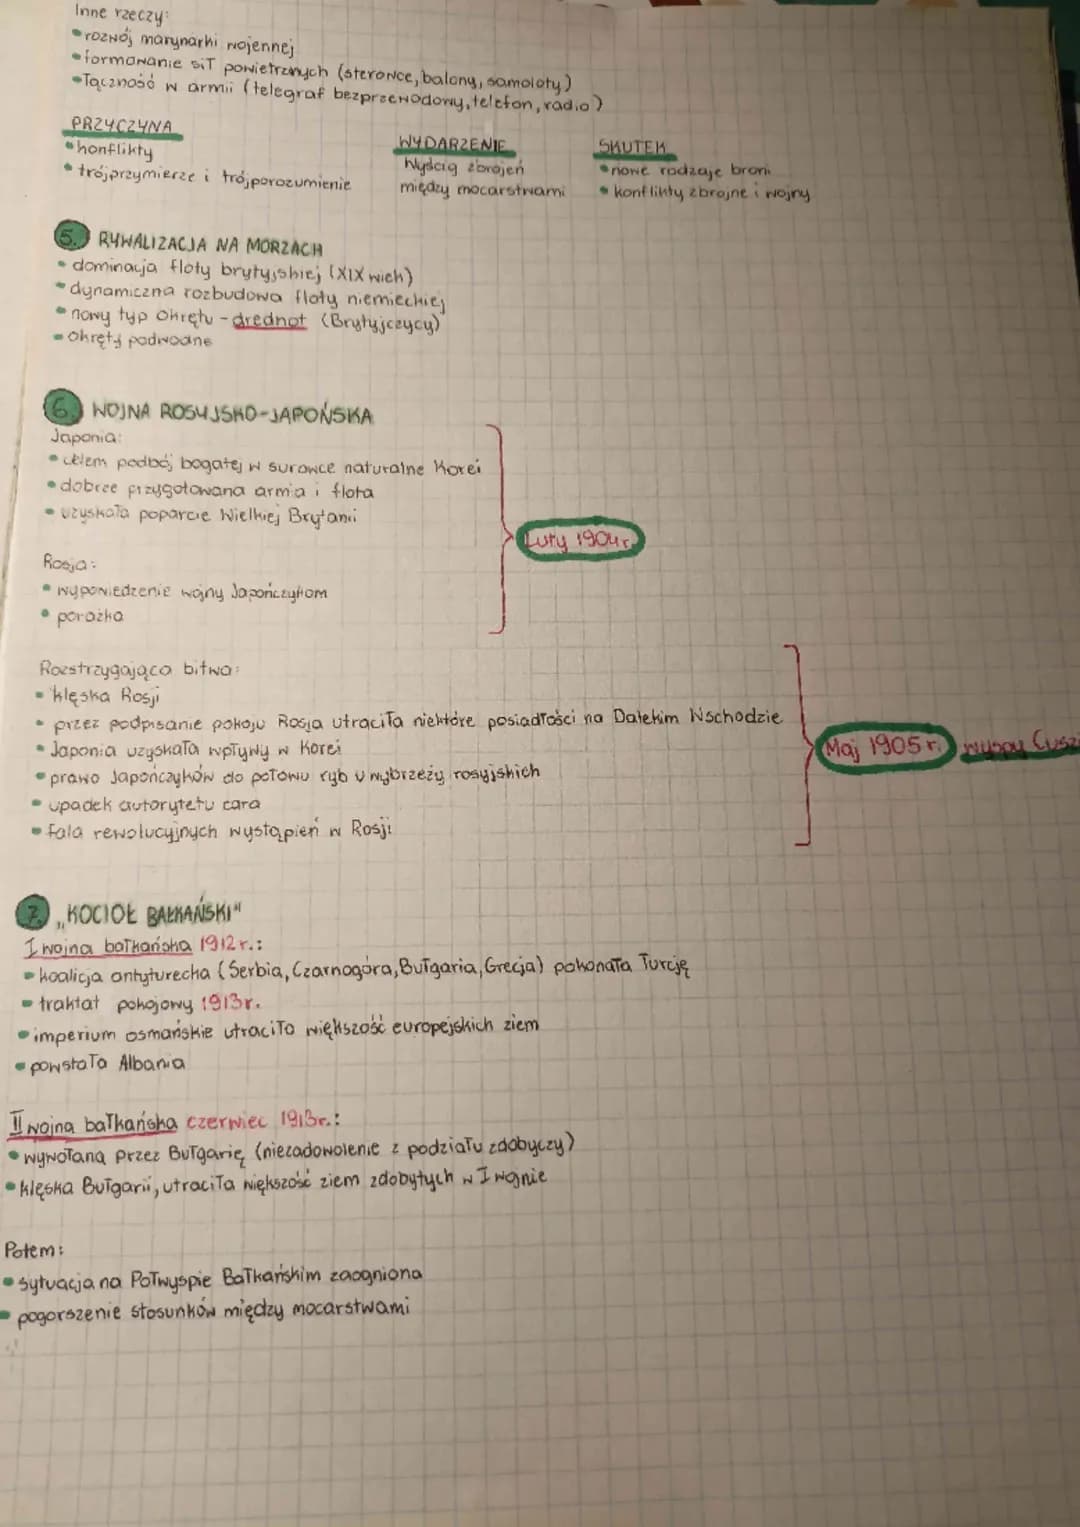 Inne rzeczy:
• rozwój marynarki wojennej
• formowanie sił powietrznych (sterowce, balony, samoloty)
• Łączność w armii (telegraf bezprzewodowy, telefon, radio)
PRZYCZYNA
• konflikty
• trójprzymierze i trójporozumienie
WYDARZENIE
Wyścig zbrojeń
między mocarstwami
SKUTEK
• nowe rodzaje broni
• konflikty zbrojne i wojny
5. RYWALIZACJA NA MORZACH
• dominacja floty brytyjskiej (XIX wiek)
• dynamiczna rozbudowa floty niemieckiej
• nowy typ okrętu - drednot (Brytyjczycy)
• okręty podwodne
6. WOJNA ROSYJSKO-JAPOŃSKA
Japonia:
• celem podbój bogatej w surowce naturalne Korei
• dobrze przygotowana armia i flota
• uzyskała poparcie Wielkiej Brytanii
Luty 1904 r.
Rosja:
• wypowiedzenie wojny Japończykom
• porażka
Rozstrzygająca bitwa:
• klęska Rosji
• przez podpisanie pokoju Rosja utraciła niektóre posiadłości na Dalekim Wschodzie
• Japonia uzyskała wpływy w Korei
Maj 1905 r. wyspy
• prawo Japończyków do połowu ryb u wybrzeży rosyjskich
• upadek autorytetu cara
• fala rewolucyjnych wystąpień w Rosji
7. „KOCIOŁ BAŁKAŃSKI"
I wojna bałkańska 1912 r.:
• koalicja antyturecka (Serbia, Czarnogóra, Bułgaria, Grecja) pokonała Turcję
• traktat pokojowy 1913 r.
• imperium osmańskie utraciło większość europejskich ziem
• powstała Albania
II wojna bałkańska czerwiec 1913 r.:
• wywołana przez Bułgarię (niezadowolenie z podziału zdobyczy)
• klęska Bułgarii, utraciła większość ziem zdobytych w I wojnie
Potem:
• sytuacja na Półwyspie Bałkańskim zaogniona
• pogorszenie stosunków między mocarstwami